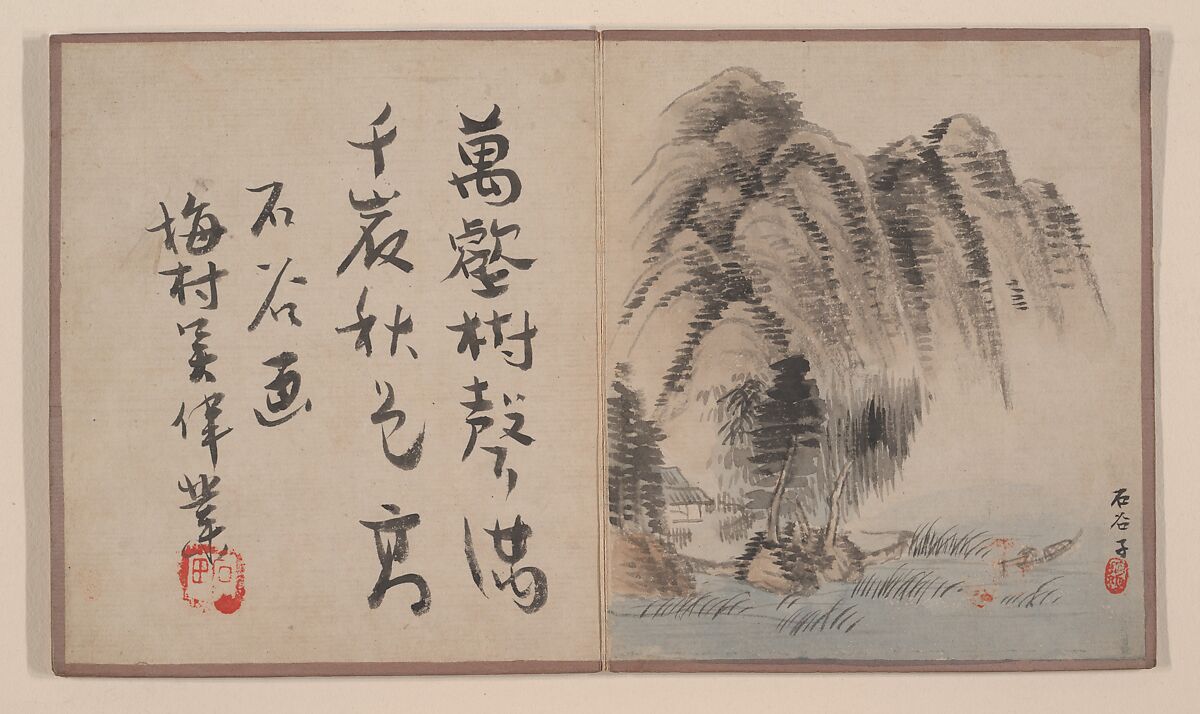 萬壑樹聲滿
千巖秋色高
石谷画
梅村吳偉業
石谷子